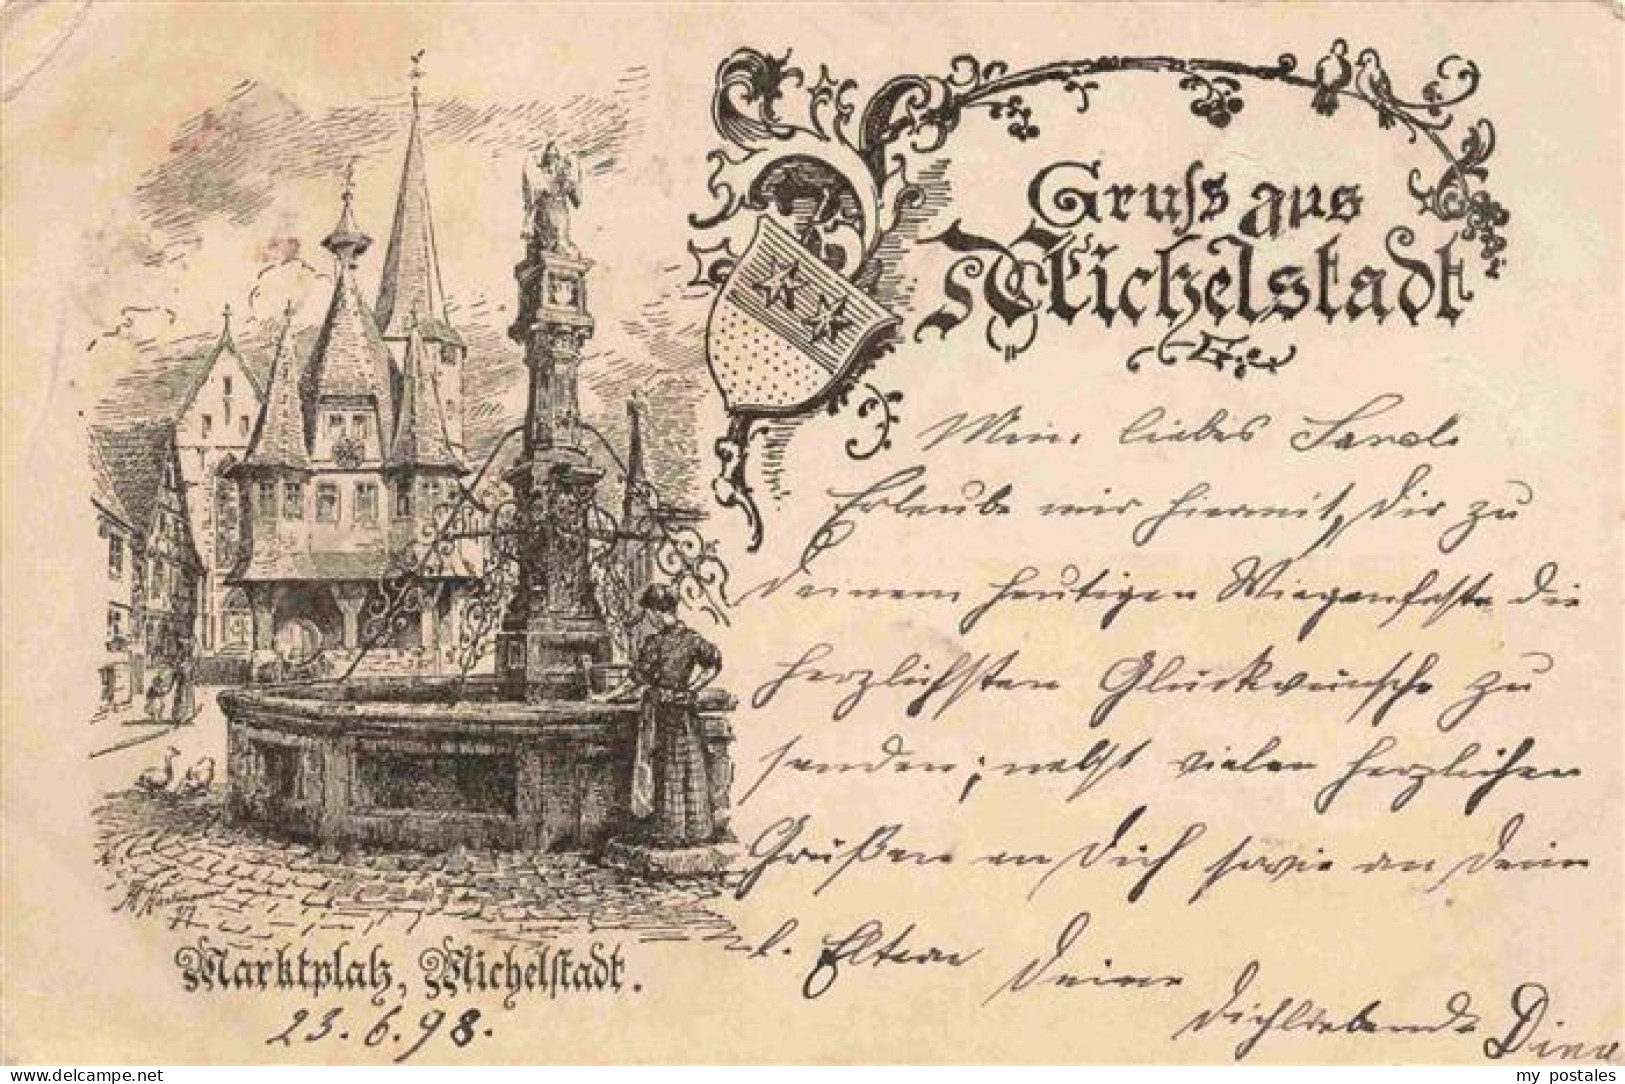 Gruss aus
Michelstadt
Mein liebes
Erlaube mir hiermit, Dir zu
Deinem heutigen Wiegenfeste die
herzlichsten Glückwünsche zu
senden; nebst vielen herzlichen
Grüßen an Dich sowie an Deine
l. Eltern
Deine
Dichliebende Dina
Marktplatz, Michelstadt.
23.6.98.
my postales